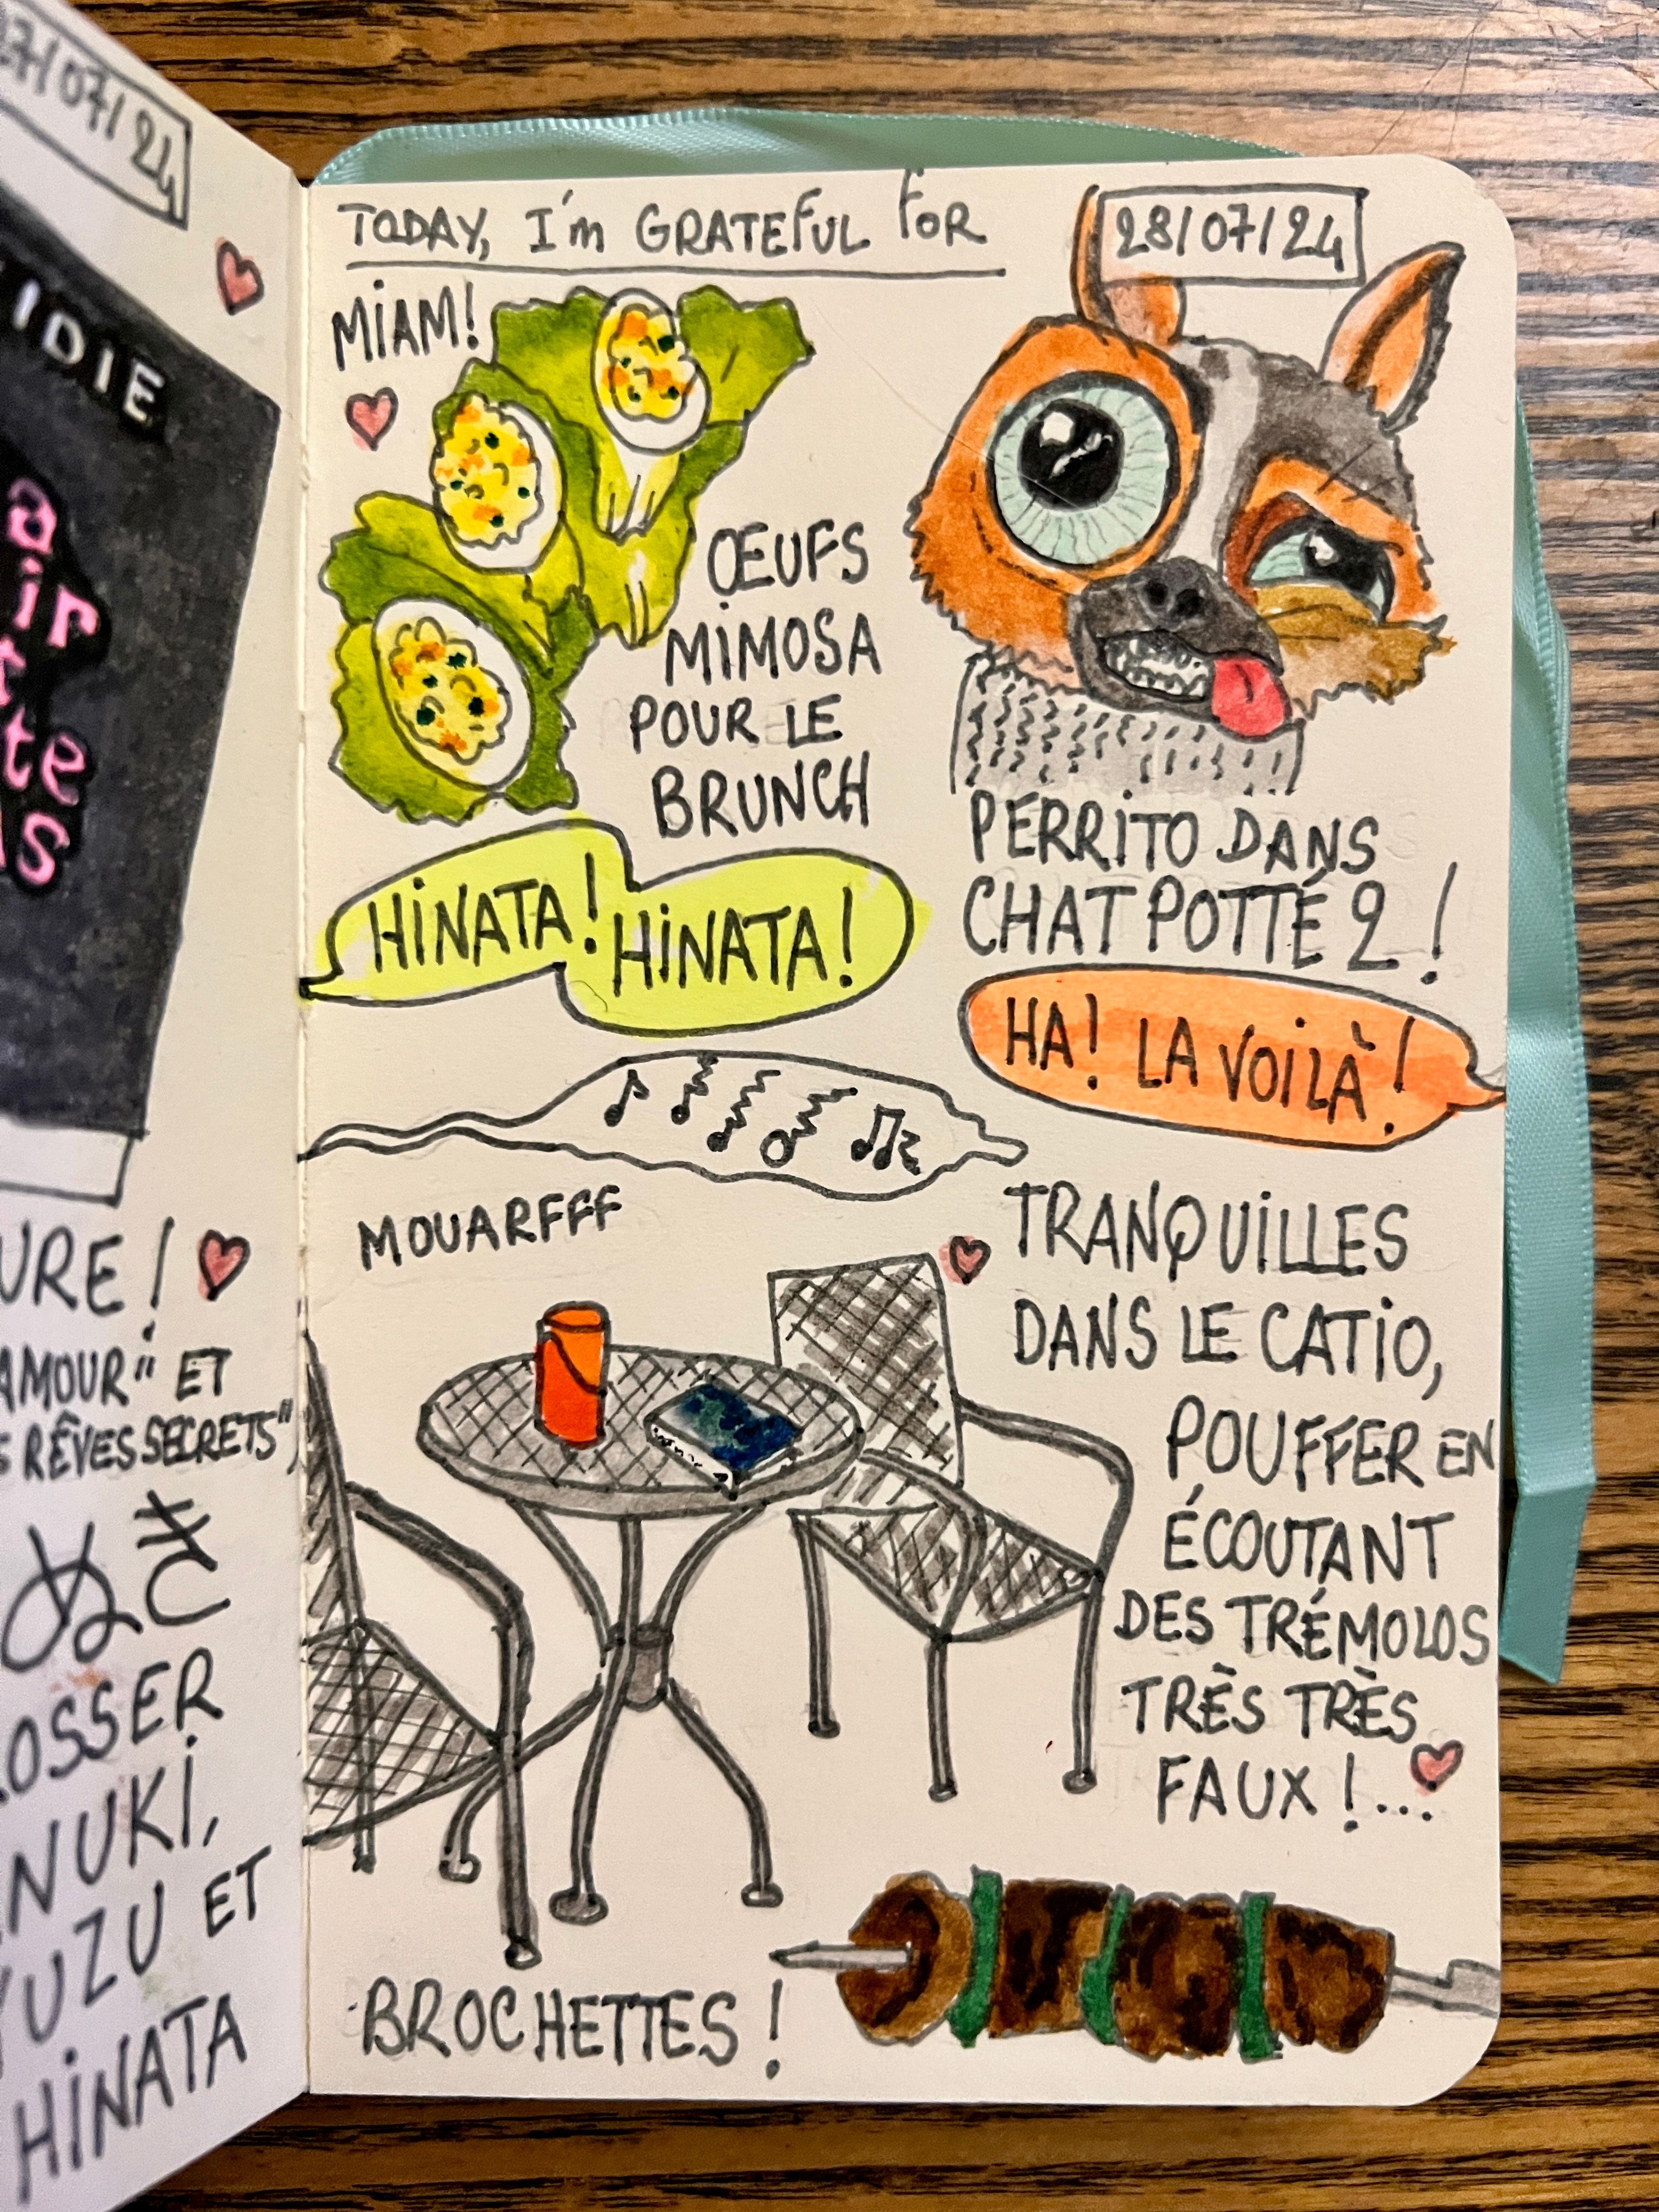 27/07/24
IDIE
a
ir
tte
s
URE !
AMOUR" ET
S RÊVES SECRETS",
OSSER
NUKi,
YUZU ET
HiNATA
TODAY, I'm GRATEFUL FOR
28/07/24
MiAM!
ŒUFS
MiMOSA
POUR LE
BRUNCH
PERRiTO DANS
CHAT POTTÉ 2 !
HiNATA! HiNATA!
HA! LA VOiLÀ!
MOUARFFF
TRANQUiLLES
DANS LE CATiO,
POUFFER EN
ÉCOUTANT
DES TRÉMOLOS
TRÈS TRÈS
FAUX !...
BROCHETTES !